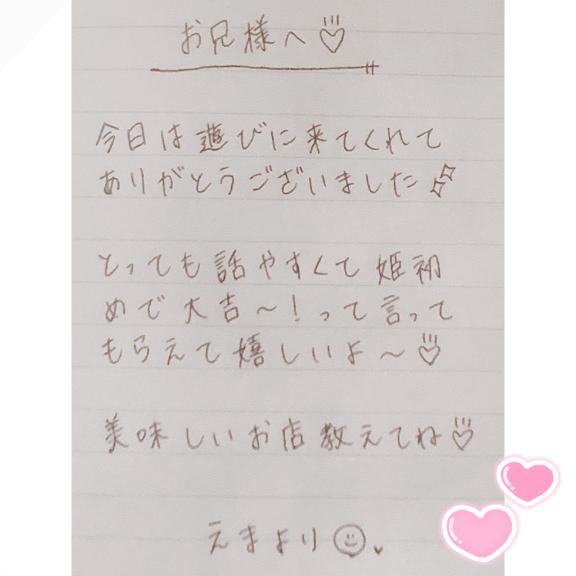 お兄様へ♡
今日は遊びに来てくれて
ありがとうございました✨
とっても話やすくて姫初
めで大吉〜！って言って
もらえて嬉しいよ〜♡
美味しいお店教えてね♡
えまより☺♥